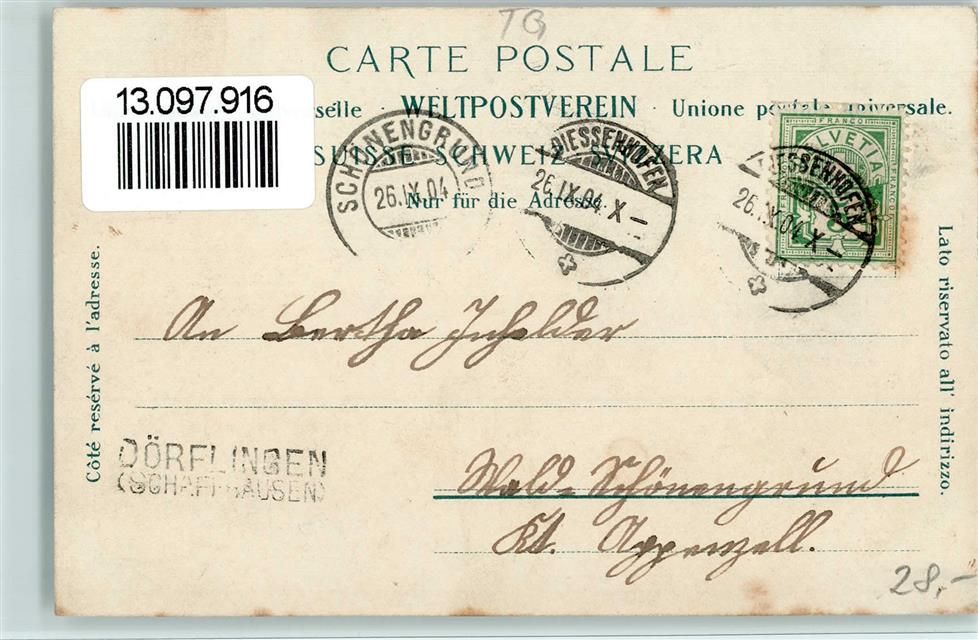 TG
CARTE POSTALE
13.097.916
selle · WELTPOSTVEREIN · Unione postale universale.
SUISSE SCHWEIZ SVIZZERA
Nur für die Adresse.
SCHÖNENGRUND
26.IX.04
DIESSENHOFEN
26.IX.04.X–
DIESSENHOFEN
26.IX.04.X–
FRANCO
HELVETIA
FRANCO
Côté resérvé à l'adresse.
Lato riservato all' indirizzo.
An Bertha Inhelder
DÖRFLINGEN
(SCHAFFHAUSEN)
Wald-Schönengrund
Kt. Appenzell.
28,-